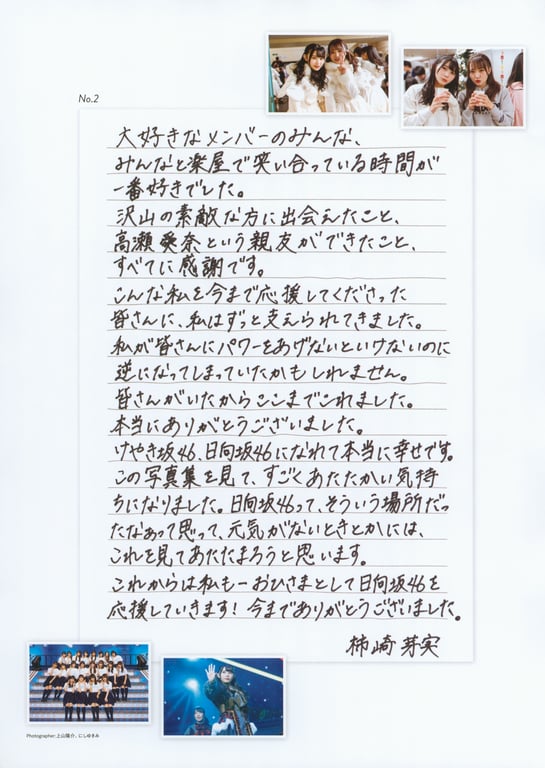 No.2
大好きなメンバーのみんな、
みんなと楽屋で笑い合っている時間が
一番好きでした。
沢山の素敵な方に出会えたこと、
高瀬愛奈という親友ができたこと、
すべてに感謝です。
こんな私を今まで応援してくださった
皆さんに、私はずっと支えられてきました。
私が皆さんにパワーをあげないといけないのに
逆になってしまっていたかもしれません。
皆さんがいたからここまでこれました。
本当にありがとうございました。
けやき坂46、日向坂46になれて本当に幸せです。
この写真集を見て、すごくあたたかい気持
ちになりました。日向坂46って、そういう場所だっ
たなあって思って、元気がないときとかには、
これを見てあたたまろうと思います。
これからは私も一おひさまとして日向坂46を
応援していきます！今までありがとうございました。
柿崎芽実
Photographer:上山陽介、にしゆきみ